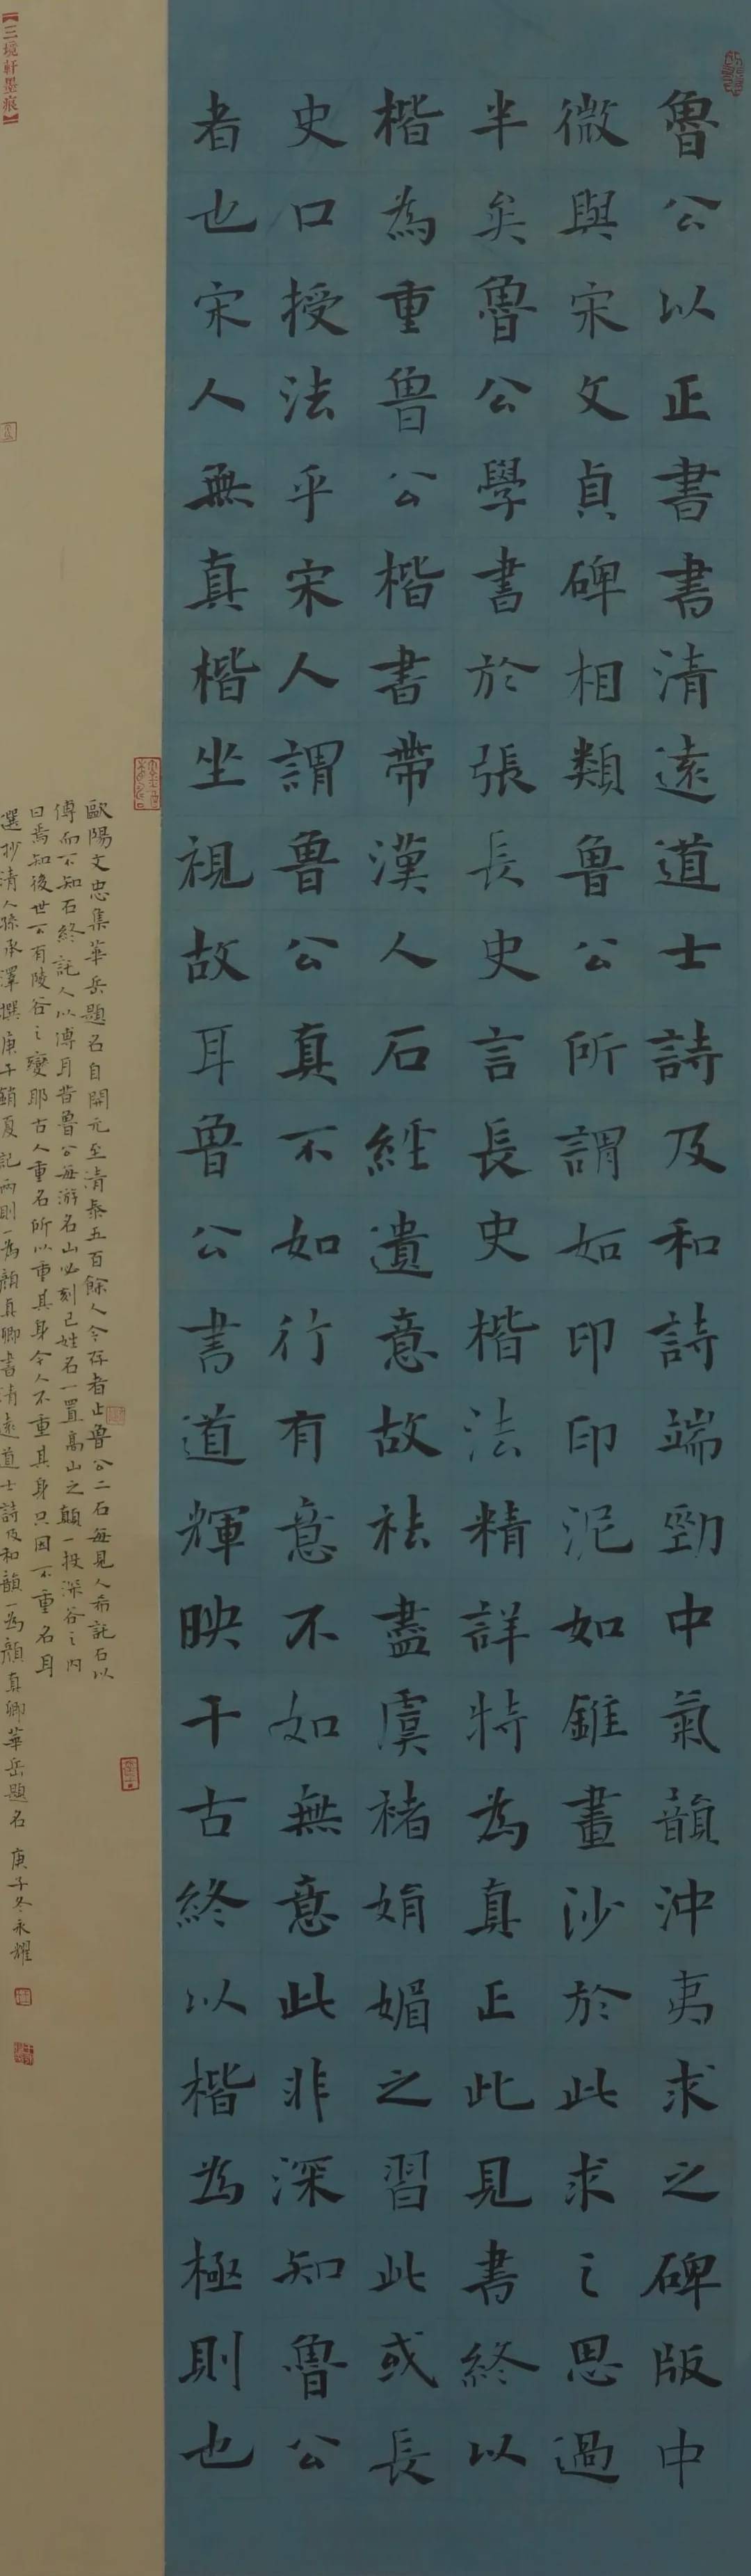 魯公以正書書清遠道士詩及和詩端勁中氣韻沖夷求之碑版中
微與宋文貞碑相類魯公所謂如印印泥如錐畫沙於此求之思過
半矣魯公學書於張長史言長史楷法精詳特為真正此見書終以
楷為重魯公楷書帶漢人石經遺意故祛盡虞褚娟媚之習此或長
史口授法乎宋人謂魯公真不如行有意不如無意此非深知魯公
者也宋人無真楷坐視故耳魯公書道輝映千古終以楷為極則也
歐陽文忠集華岳題名自開元至清泰五百餘人今存者止魯公二石每見人希託石以
傳而不知石終託人以傳耳昔魯公每游名山必刻己姓名一置高山之顛一投深谷之內
曰焉知後世不有陵谷之變耶古人重名所以重其身今人不重其身只因不重名耳
選抄清人孫承澤撰庚子銷夏記兩則一為顏真卿書清遠道士詩及和韻一為顏真卿華岳題名 庚子冬永耀
【三境軒墨痕】